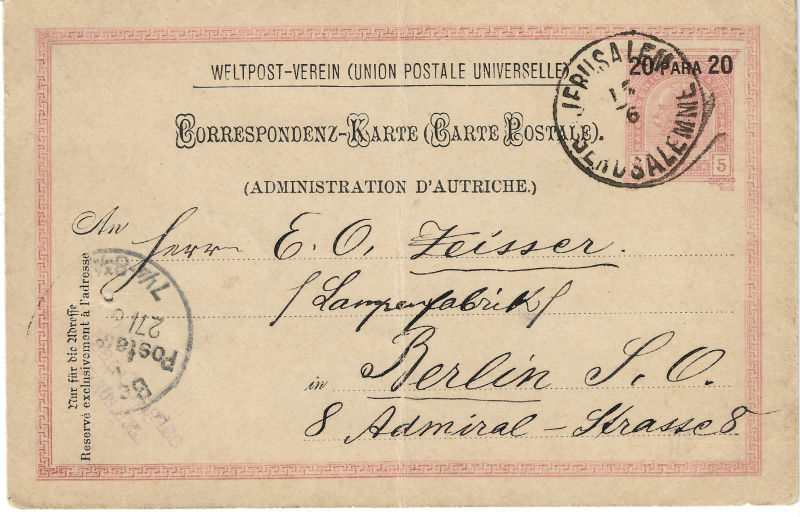 WELTPOST-VEREIN (UNION POSTALE UNIVERSELLE)
20 PARA 20
JERUSALEM
17
6
GERUSALEMME
CORRESPONDENZ-KARTE (CARTE POSTALE).
5
(ADMINISTRATION D'AUTRICHE.)
An Herrn E. O. Zeisser.
/Lampenfabrik/
in Berlin S. O.
8 Admiral-Strasse 8
Nur für die Adresse
Réservé exclusivement à l'adresse
Postamt
27/6